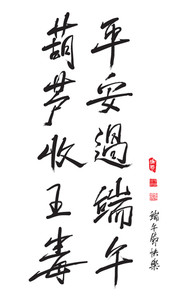 平安過端午
葫芦收王毒
端午節快樂